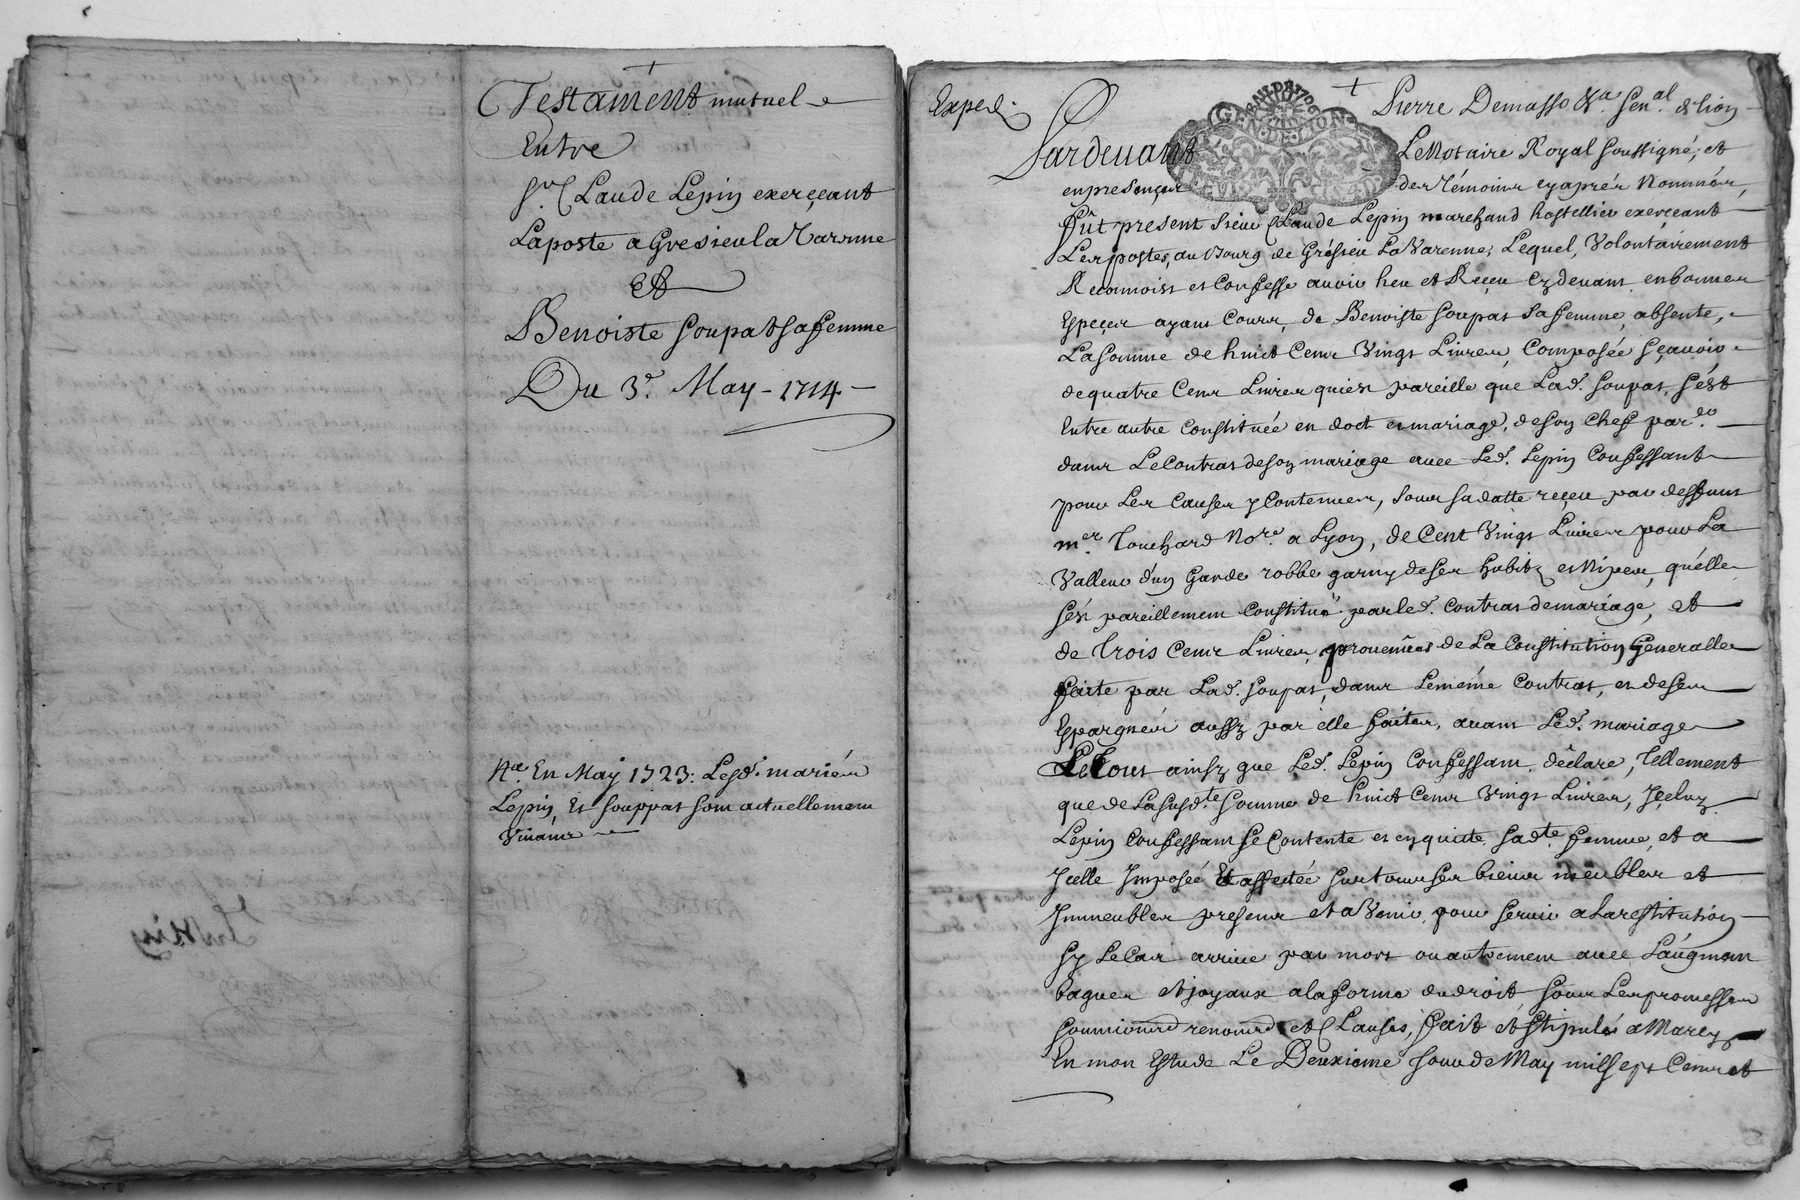 Testament mutuel
Entre
Sr. Claude Lepin exerçeant
Laposte a Gresieu la Varenne
Et
Benoiste Soupat sa femme
Du 3e. May - 1714 -
Na. En May 1723: Lesd. mariés
Lepin, Et Souppat sont actuellement
Vivants
Exped.
Pierre Demasso &a Genal. de lion
GEN DE LION
Pardeuant Le Notaire Royal soussigné, et
en presençes des témoins cy aprés Nommés,
fût present sieur Claude Lepin marchand hostellier exerceant
Les postes, au Bourg de Grésieu La Varenne, Lequel, Volontairement
Reconnoist et Confesse auoir heu et Reçeu cy deuant en bonnes
Espeçes ayant Cours, de Benoiste Soupat sa femme, absente,
La somme de huict Cent Vingt Liures, Composée sçauoir
de quatre Cent Liures qui est pareille que Lad. Soupat, s'est
Entre autre Constituée en doct et mariage, de son chef par
dans Le Contrat de son mariage auec Led. Lepin Confessant
pour Les Causes y Contenues, sous sa datte reçeu par deffunt
mer. Touchard Nore. a Lyon, de Cent Vingt Liures pour La
Valleur d'un Garde robbe garny de ses habits et Nipes, qu'elle
s'est pareillement Constitué par led. Contrat de mariage, et
de Trois Cent Liures, prouenûes de La Constitution Generalle
faite par Lad. Soupat, dans Le méme Contrat, et de ses
Epargnes aussy par elle faites, auant Led. mariage
Le Tout ainsy que Led. Lepin Confessant déclare, Tellement
que de La susd.te somme de huict Cent Vingt Liures, Jçeluy
Lepin Confessant se Contente et en quitte sad.te femme, et a
Jcelle Imposée Et affectée sur tous ses biens meubles et
Immeubles presents et a Venir, pour seruir a La restitution
sy Le Cas arriue par mort ou autrement auec L'augment
bagues et joyaux a la forme du droit, sous Les promesses
soumionnd renonnd et Clauses, fait et stipulé a Marcy
En mon Estude Le Deuxieme jour de May mil sept Cent et